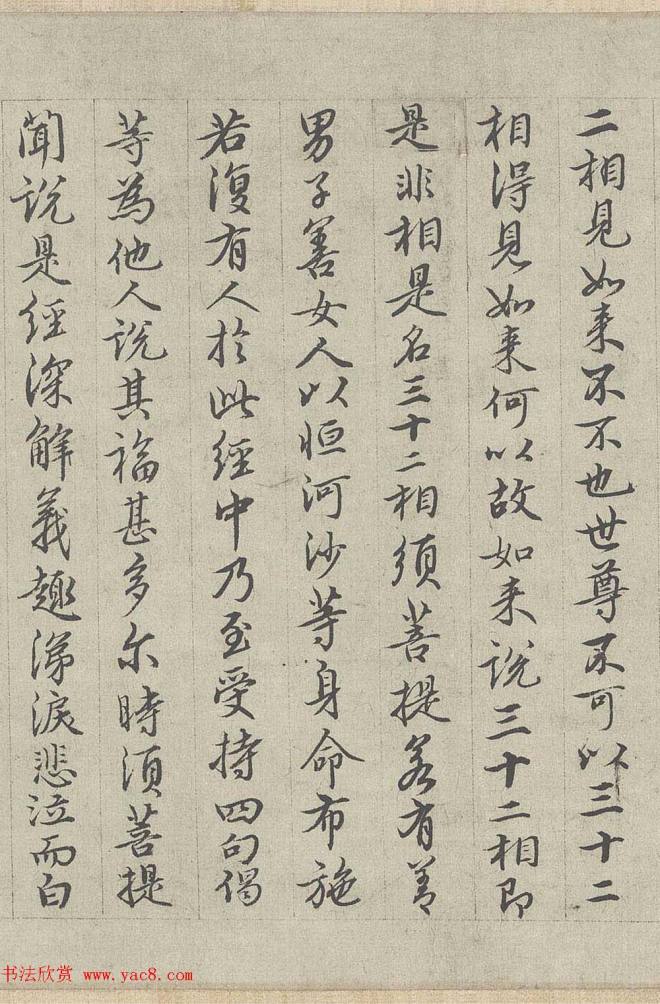 二相見如来不不也世尊不可以三十二
相得見如来何以故如来説三十二相即
是非相是名三十二相須菩提若有善
男子善女人以恒河沙等身命布施
若復有人於此經中乃至受持四句偈
等為他人説其福甚多尔時須菩提
聞説是經深解義趣涕淚悲泣而白
书法欣赏 www.yac8.com